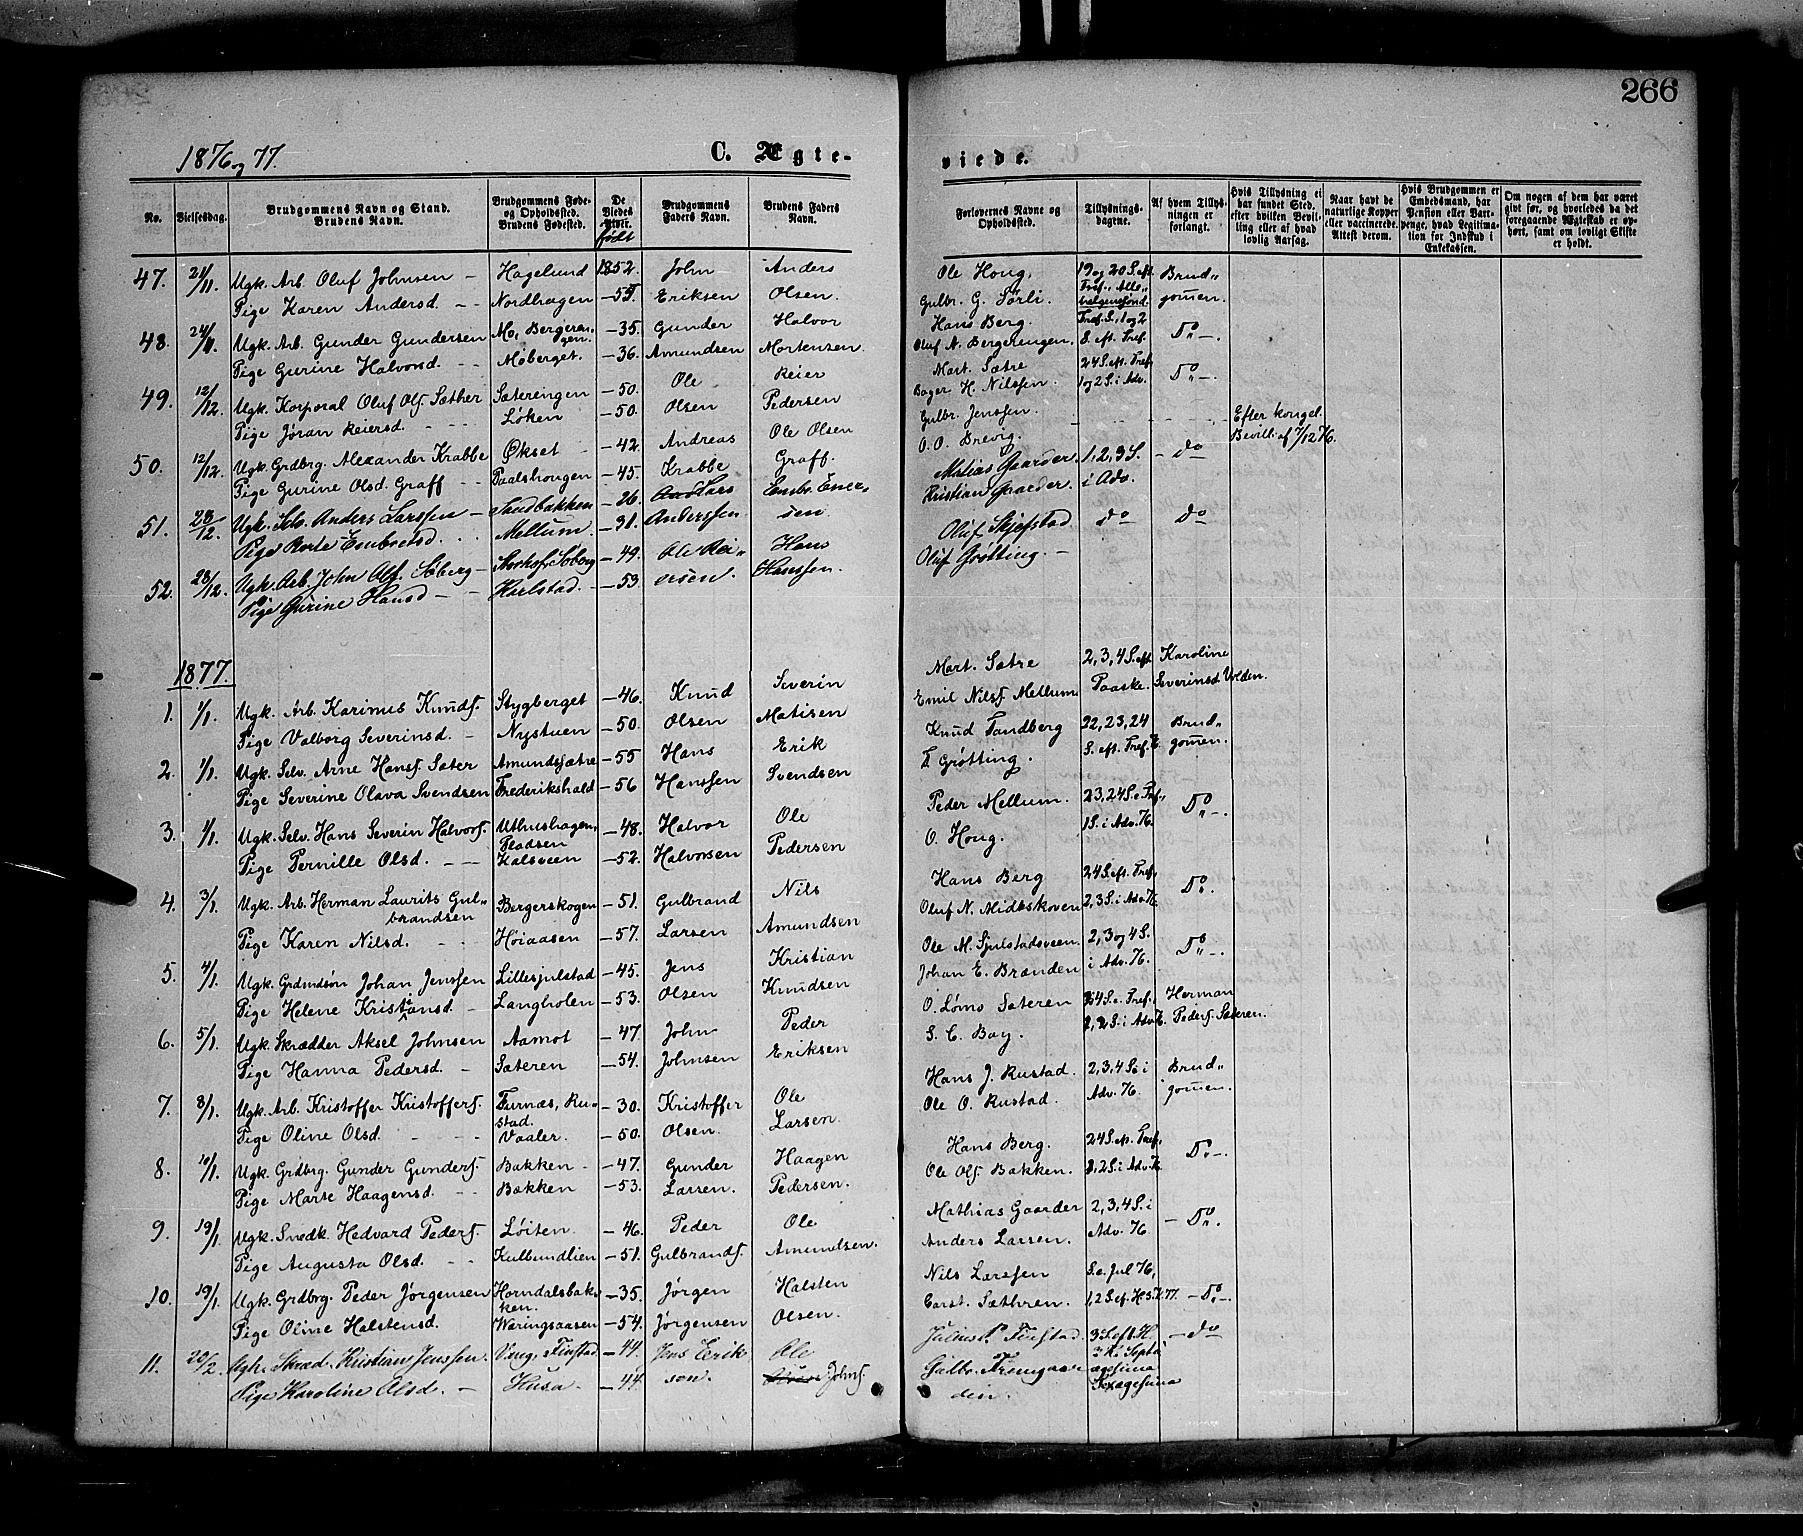 266
1876 og 77.
C. Ægte-
viede.
No.
Vielsesdag.
Brudgommens Navn og Stand.
Brudens Navn.
Brudgommens Føde-
og Opholdssted.
Brudens Fødested.
De
Viedes
Alder.
født
Brudgommens
Faders Navn.
Brudens Faders
Navn.
Forlovernes Navne og
Opholdssted.
Tillysnings-
dagene.
Af hvem Tillys-
ningen er
forlangt.
Hvis Tillysning ei
har fundet Sted,
efter hvilken Bevil-
ling eller af hvad
lovlig Aarsag.
Naar havt de
naturlige Kopper
eller vaccinerede.
Attest derom.
Hvis Brudgommen er
Embedsmand, har
Pension eller Vart-
penge, hvad Legitima-
tion for Indskud i
Enkekassen.
Om nogen af dem har været
givt før, og hvorledes da det
foregaaende Ægteskab er op-
hørt, samt om lovligt Skifte
er holdt.
47. 21/11. Ugk. Arb. Oluf Johnsen – Hagelund 1852. John Anders Ole Houg, 19 og 20 S. eft. Brud-
Pige Karen Andersd. – – Nordhagen – 55. Eriksen Olsen. Gulbr. G. Sørli. Tref., Alle- gomen.
helgensønd.
48. 24/11. Ugk. Arb. Gunder Gundersen Mo, Bergeren- – 35. Gunder Halvor Hans Berg. Tref. S., 1 og 2 Do –
gen.
Pige Gurine Halvorsd. – – Moberget. – 36. Amundsen Mortensen. Oluf N. Bergerengen. S. eft. Tref.
49. 12/12. Ugk. Korporal Oluf Ols. Sæther Sæterengen – 50. Ole Reier Mart. Sætre 24 S. eft. Tref. Do –
Pige Jøran Reiersd. – – – Løken – 50. Olsen Pedersen Bager H. Nilssen. 1 og 2 S. i Adv.
50. 12/12. Ugk. Grdbrg. Alexander Krabbe Økset – 42. Andreas Ole Olsen Gulbr. Jenssen. Efter kongel.
Pige Gurine Olsd. Graff – – Paalshougen – 45. Krabbe Graff. O. O. Brevig. Bevill. af 7/12 76.
51. 28/12 Ugk. Selv. Anders Larssen – Sandbakken – 26. Lars Embr. Ener- Matias Gaarder. 1, 2, 3 S. – do
Pige Marte Embretsd. . . . Mellum. – 31. Anderssen sen Kristian Gaarder. i Adv.
52. 28/12. Ugk. Arb. John Ols. Søberg – Storhof, Søberg – 49. Ole Rei- Hans Oluf Skjefstad do do
Pige Gurine Hansd – – Karlstad. – 53. ersen. Hanssen. Oluf Grøtting. –
1877.
1. 1/1. Ugk. Arb. Karinus Knuds. Stygberget – 46. Knud Severin Mart. Sætre 2, 3, 4 S. eft. Karoline
Pige Valborg Severinsd. – Nystuen – 50. Olsen Matisen Emil Nilss. Mellum Paaske. Severinsd. Volden.
2. 1/1. Ugk. Selv. Arne Hanss. Sæter Amundsætre – 55 Hans Erik Knud Tandberg 22, 23, 24 Brud-
Pige Severine Olava Svendsen Frederikshald – 56 Hanssen Svendsen T. Grøtting. S. eft. Tref. 76. gomen.
3. 1/1. Ugk. Selv. Hans Severin Halvors. Uthushagen, – 48. Halvor Ole Peder Mellum. 23, 24 S. e. Tref., Do –
Pladsen
Pige Pernille Olsd. – – Kalsveen – 52. Halvorsen Pedersen O. Houg. 1 S. i Adv. 76.
4. 3/1. Ugk. Arb. Herman Laurits Gul- Bergerskogen – 51. Gulbrand Nils Hans Berg 24 S. eft. Tref., Do.
brandsen
Pige Karen Nilsd. – – Høiaasen – 57. Larsen Amundsen Oluf N. Midtskoven 2, 3 S. i Adv. 76.
5. 4/1. Ugk. Grdmdsøn Johan Jenssen Lillesjulstad – 45. Jens Kristian Ole M. Sjulstadsveen. 2, 3 og 4 S. Do –
Pige Helene Kristiansd. – Langholen – 53. Olsen Knudsen Johan E. Brænden i Adv. 76.
6. 5/1. Ugk. Skrædder Aksel Johnsen Aamot – 47 John Peder O. Løms Sæteren 24 S. e. Tref., Herman
Pige Hanna Pedersd. – Sæteren – 54. Johnsen Eriksen S. C. Bay. 1, 2 S. i Adv. 76. Peders. Sæteren.
7. 8/1. Ugk. Arb. Kristoffer Kristoffers. Furnæs, Ru- – 30. Kristoffer Ole Hans J. Rustad. 2, 3, 4 S. i Brud-
stad.
Pige Oline Olsd. – – – Vaaler. – 50. Olsen. Larsen. Ole O. Rustad. Adv. 76. gomen.
8. 10/1. Ugk. Grdbrg. Gunder Gunders. Bakken – – 47. Gunder Haagen Hans Berg. 24 S. eft. Tref., Do –
Pige Marte Haagensd. – – Bakken – 53. Larsen. Pedersen. Ole Ols. Bakken. 1, 2 S. i Adv. 76.
9. 19/1. Ugk. Snedk. Hedvard Peders. Løiten. – 46. Peder Ole Mathias Gaarder 2, 3, 4 S. i – Do.
Pige Augusta Olsd. – – Kulbundlien – 51. Gulbrands. Amundsen. Anders Larsen. Adv. 76.
10. 19/1. Ugk. Grdbrg. Peder Jørgensen Horndalsbak- – 35. Jørgen Halsten Nils Larssen S. e. Jul 76, – Do –.
ken.
Pige Oline Halstensd. Wæringsaasen – 54. Jørgensen Olsen. Carst. Sæthren. 1, 2 S. ef. H. 3. K. 77.
11. 20/2. Ugk. Skræd. Kristian Jenssen. Vang, Finstad – 44. Jens Erik- Ole Julius P. Finstad. 3 S. eft. H. – do
3 K. Septu-
Pige Karoline Olsd. – Husa. – 44. sen. Johns. Gulbr. Fremgaar- agesima
den. Sexagesima